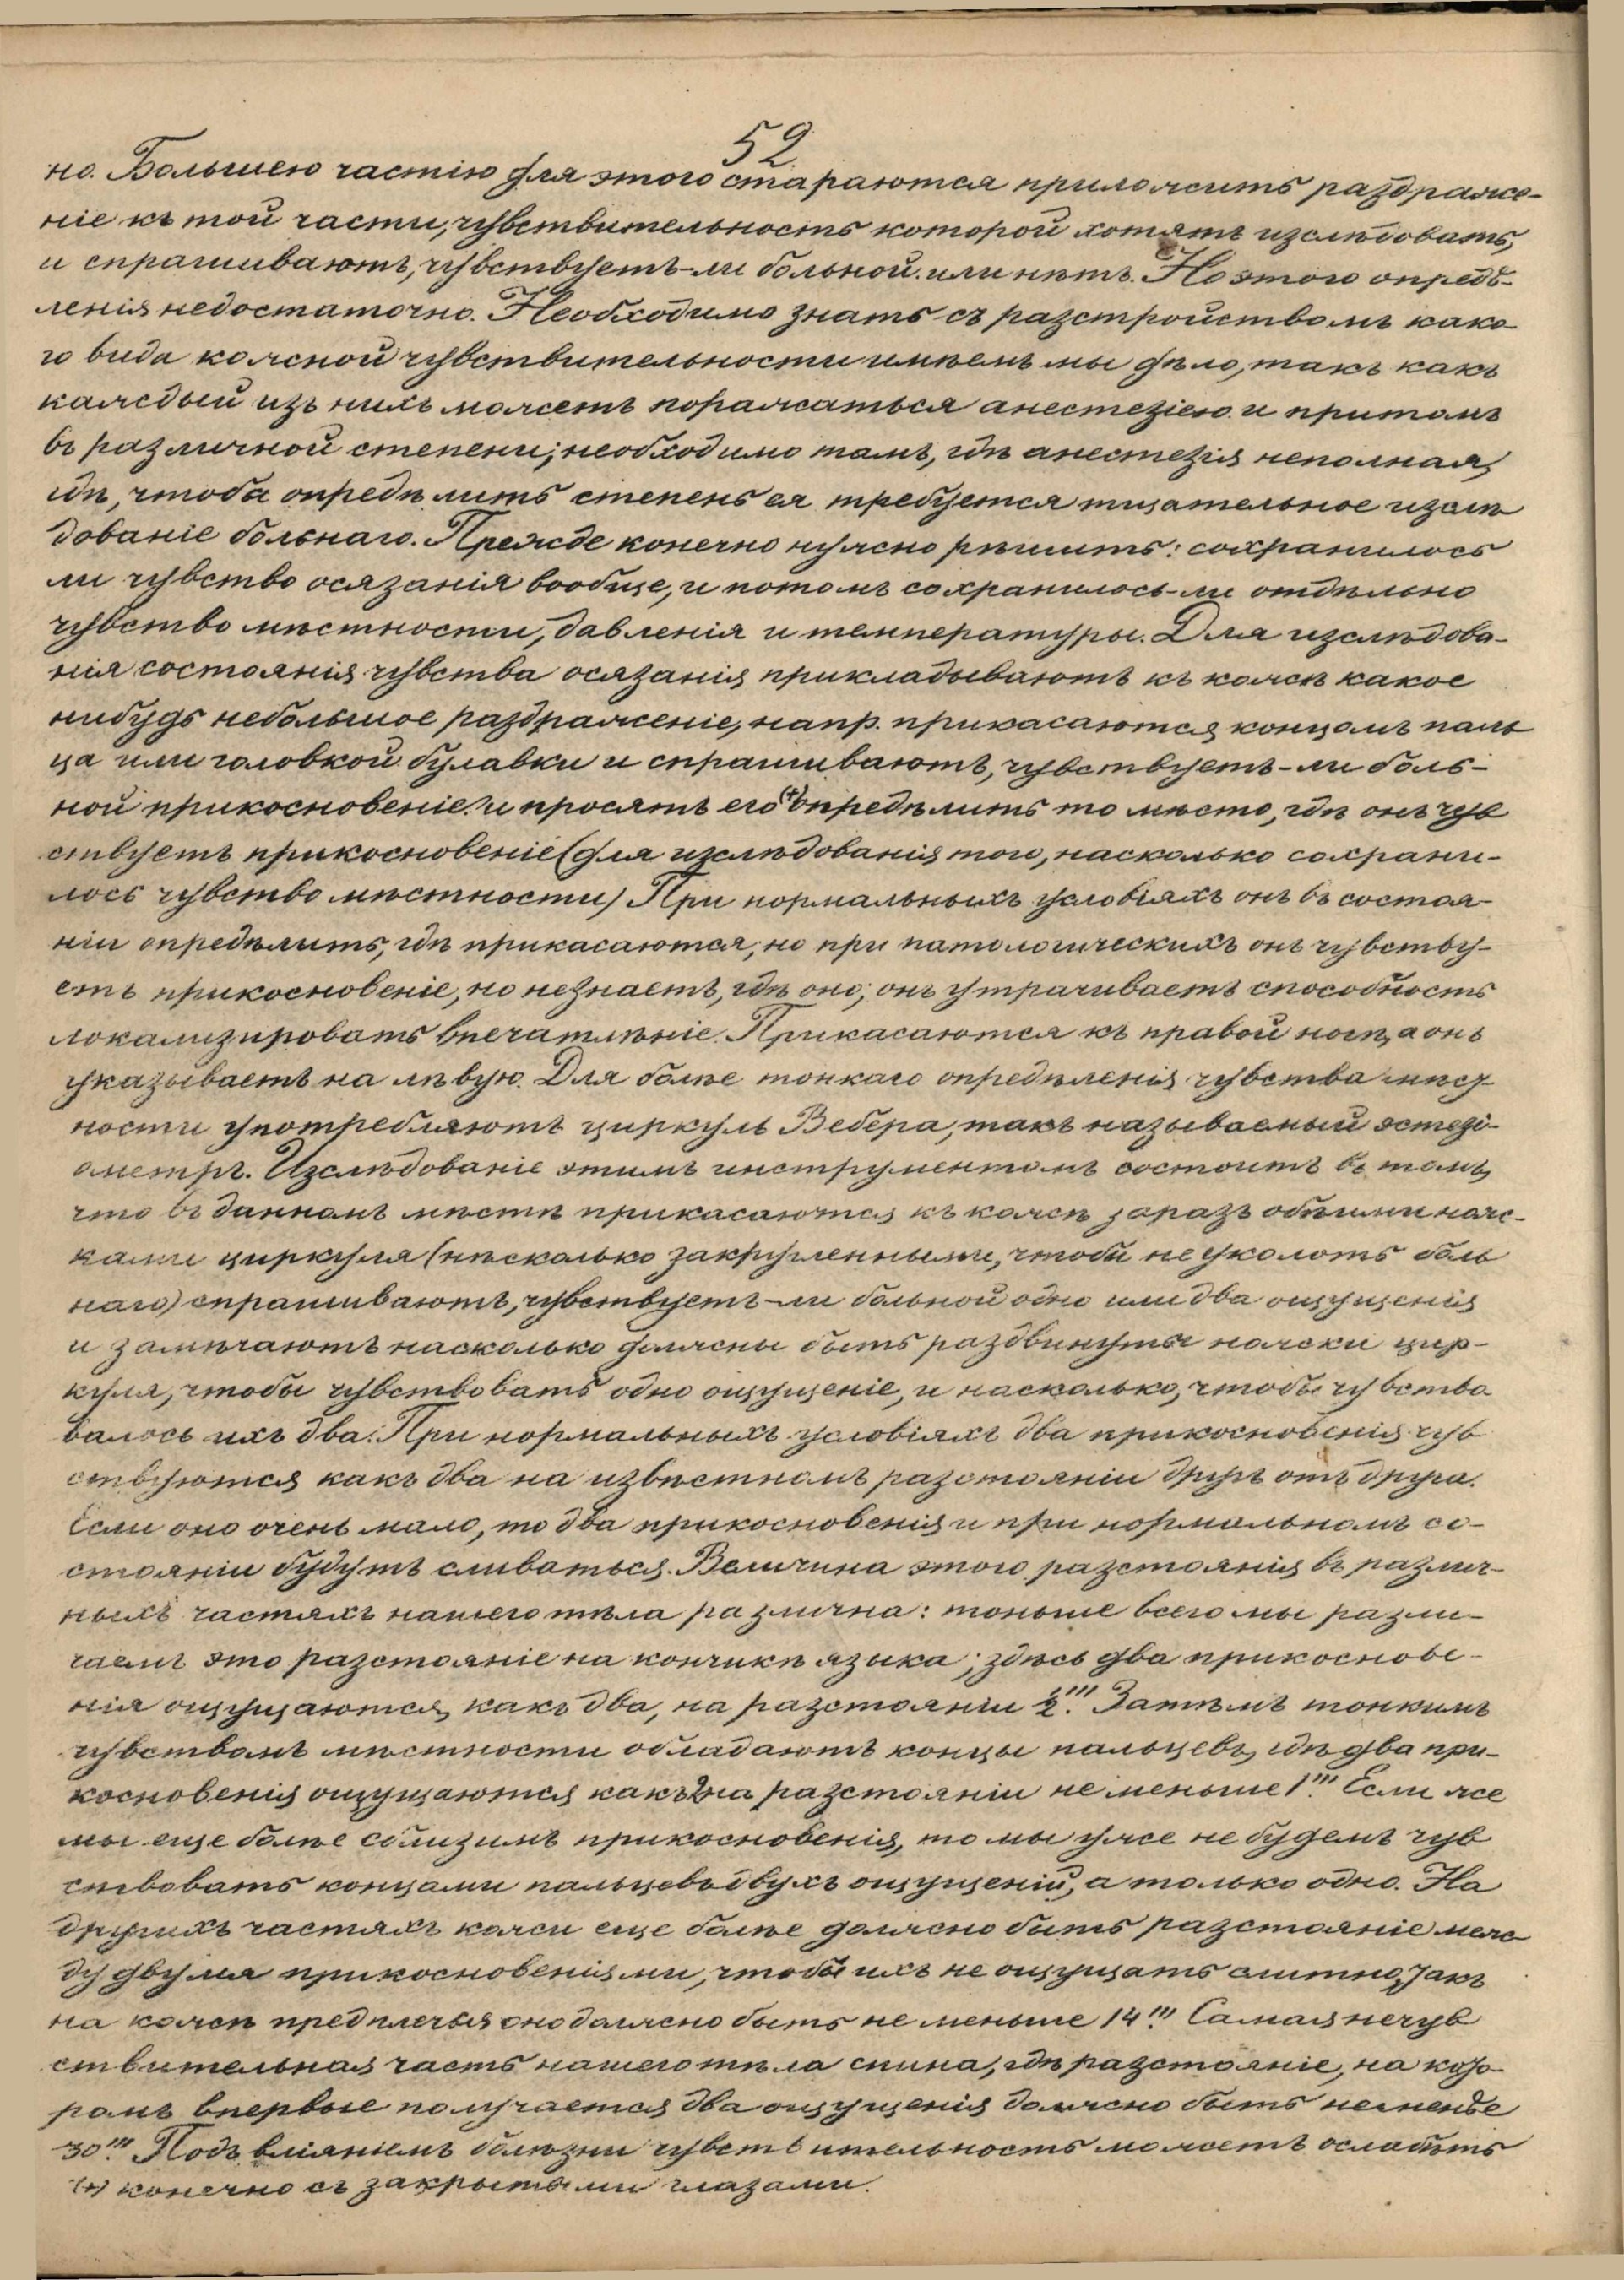 52
но. Большею частію для этого стараются приложить раздраже-
ніе къ той части, чувствительность которой хотятъ изслѣдовать,
и спрашиваютъ, чувствуетъ-ли больной или нѣтъ. Но этого опредѣ-
ленія недостаточно. Необходимо знать съ разстройствомъ како-
го вида кожной чувствительности имѣемъ мы дѣло, такъ какъ
каждый изъ нихъ можетъ поражаться анестезіею и притомъ
въ различной степени; необходимо тамъ, гдѣ анестезія неполная,
гдѣ, чтобы опредѣлить степень ея требуется тщательное изслѣ
дованіе больнаго. Прежде конечно нужно рѣшить: сохранилось
ли чувство осязанія вообще, и потомъ сохранилось-ли отдѣльно
чувство мѣстности, давленія и температуры. Для изслѣдова-
нія состоянія чувства осязанія прикладываютъ къ кожѣ какое
нибудь небольшое раздраженіе, напр. прикасаются концомъ паль
ца или головкой булавки и спрашиваютъ, чувствуетъ-ли боль-
ной прикосновеніе и просятъ его (+) опредѣлить то мѣсто, гдѣ онъ чув
ствуетъ прикосновеніе (для изслѣдованія того, насколько сохрани-
лось чувство мѣстности) При нормальныхъ условіяхъ онъ въ состоя-
ніи опредѣлить, гдѣ прикасаются, но при патологическихъ онъ чувству-
етъ прикосновеніе, но не знаетъ, гдѣ оно; онъ утрачиваетъ способность
локализировать впечатлѣніе. Прикасаются къ правой ногѣ, а онъ
указываетъ на лѣвую. Для болѣе тонкаго опредѣленія чувства мѣст
ности употребляютъ циркуль Вебера, такъ называемый эстезі-
ометръ. Изслѣдованіе этимъ инструментомъ состоитъ въ томъ,
что въ данномъ мѣстѣ прикасаются къ кожѣ заразъ обѣими нож-
ками циркуля (нѣсколько закругленными, чтобы не уколоть боль
наго) спрашиваютъ, чувствуетъ-ли больной одно или два ощущенія
и замѣчаютъ насколько должны быть раздвинуты ножки цир-
куля, чтобы чувствовать одно ощущеніе, и насколько, чтобы чувство
валось ихъ два. При нормальныхъ условіяхъ два прикосновенія чув
ствуются какъ два на извѣстномъ разстояніи другъ отъ друга.
Если оно очень мало, то два прикосновенія и при нормальномъ со-
стояніи будутъ сливаться. Величина этого разстоянія въ различ-
ныхъ частяхъ нашего тѣла различна: тоньше всего мы разли-
чаемъ это разстояніе на кончикѣ языка; здѣсь два прикоснове-
нія ощущаются, какъ два, на разстояніи ½'''. Затѣмъ тонкимъ
чувствомъ мѣстности обладаютъ концы пальцевъ, гдѣ два при-
косновенія ощущаются какъ 2 на разстояніи не меньше 1'''. Если же
мы еще болѣе сблизимъ прикосновенія, то мы уже не будемъ чув
ствовать концами пальцевъ двухъ ощущеній, а только одно. На
другихъ частяхъ кожи еще болѣе должно быть разстояніе меж
ду двумя прикосновеніями, чтобы ихъ не ощущать слитно, такъ
на кожѣ предплечья оно должно быть не меньше 14'''. Самая нечув
ствительная часть нашего тѣла спина, гдѣ разстояніе, на кото-
ромъ впервые получается два ощущенія должно быть не менѣе
30'''. Подъ вліяніемъ болѣзни чувствительность можетъ ослабить
(+) конечно съ закрытыми глазами.